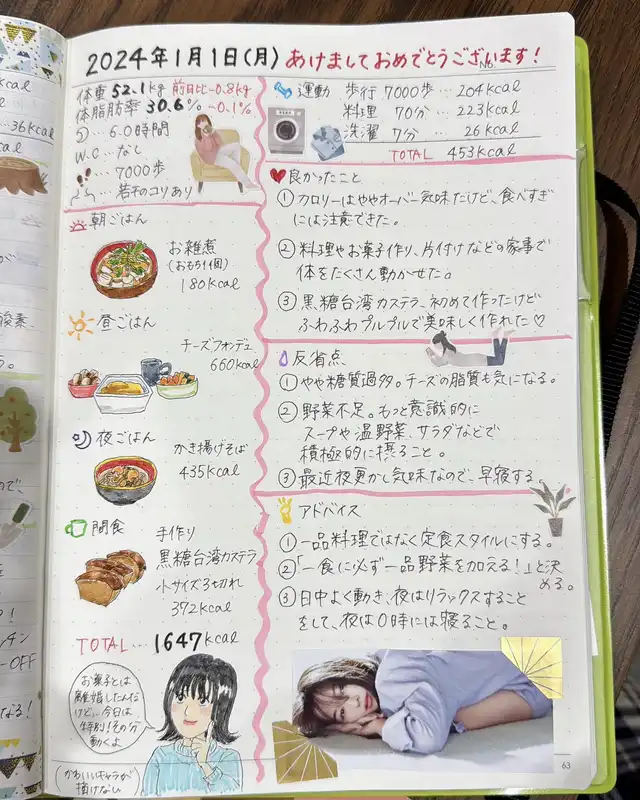 2024年1月1日(月) あけましておめでとうございます!
No.
体重 52.1kg 前日比-0.8kg
体脂肪率 30.6% -0.1%
… 6.0時間
W.C…なし
… 7000歩
… 若干のコリあり
朝ごはん
お雑煮
(おもち1個)
180kcal
昼ごはん
チーズフォンデュ
660kcal
夜ごはん
かき揚げそば
435kcal
間食
手作り
黒糖台湾カステラ
小サイズ3切れ
372kcal
TOTAL… 1647kcal
お菓子とは
離婚したんだ
けど…今日は
特別!その分
動くよ
(かわいいキャラが
描けない)
運動 歩行 7000歩… 204kcal
料理 70分… 223kcal
洗濯 7分… 26kcal
TOTAL 453kcal
良かったこと
①カロリーはややオーバー気味だけど、食べすぎ
には注意できた。
②料理やお菓子作り、片付けなどの家事で
体をたくさん動かせた。
③黒糖台湾カステラ、初めて作ったけど
ふわふわプルプルで美味しく作れた♡
反省点
①やや糖質過多。チーズの脂質も気になる。
②野菜不足。もっと意識的に
スープや温野菜、サラダなどで
積極的に摂ること。
③最近夜更かし気味なので、早寝する
アドバイス
①一品料理ではなく定食スタイルにする。
②「一食に必ず一品野菜を加える!」と決
める。
③日中よく動き、夜はリラックスすること
をして、夜は0時には寝ること。
63
kcal
…36kcal
cal
が
後素、
う。
ので、
!
チン
-OFF
なる!